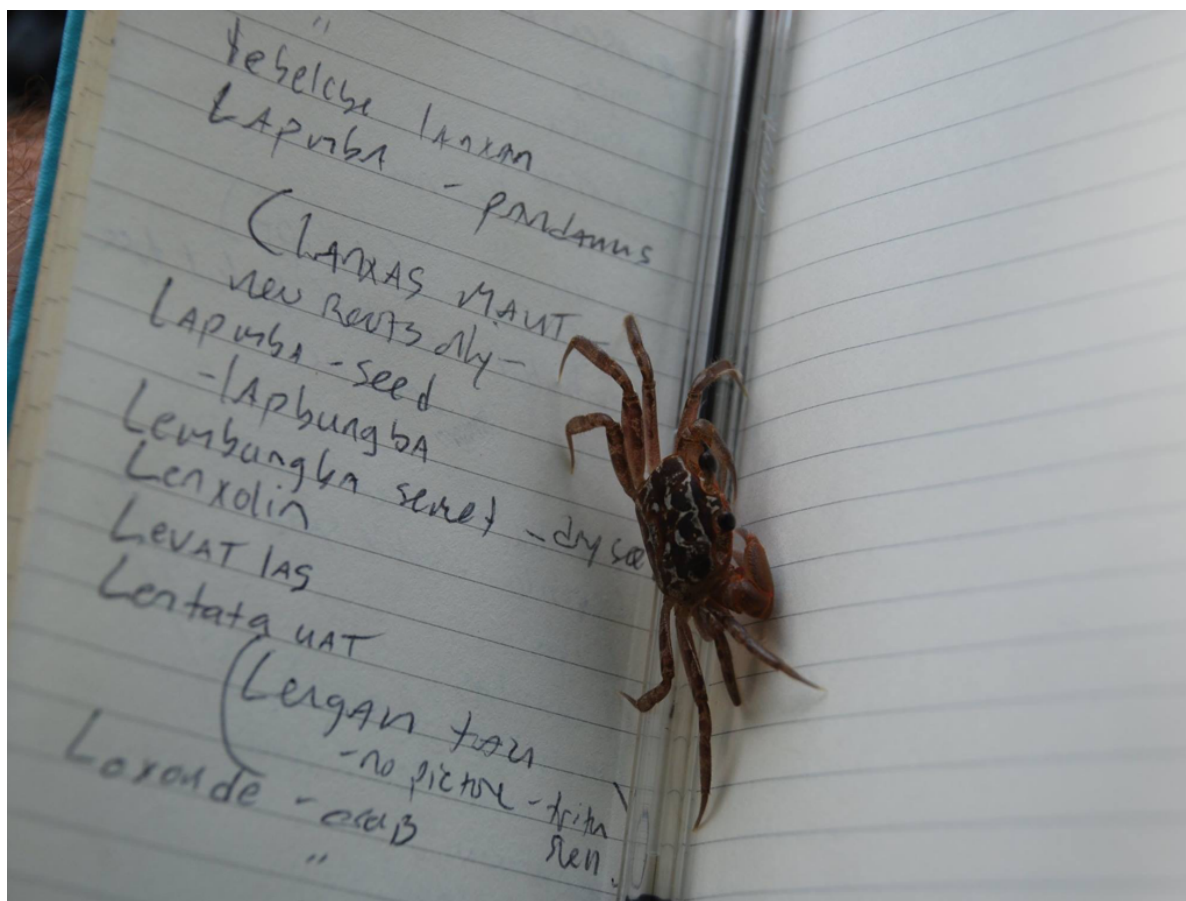 "
Lapumba - pandanus
(Lanxas MAUT
new Roots only -
Lapumba - seed
- lapbungba
Lembungba semet - dry see
Lenxolin
Levat las
Lentata uat
(Lengan
- no picture - triton
Loxonde - crab
"